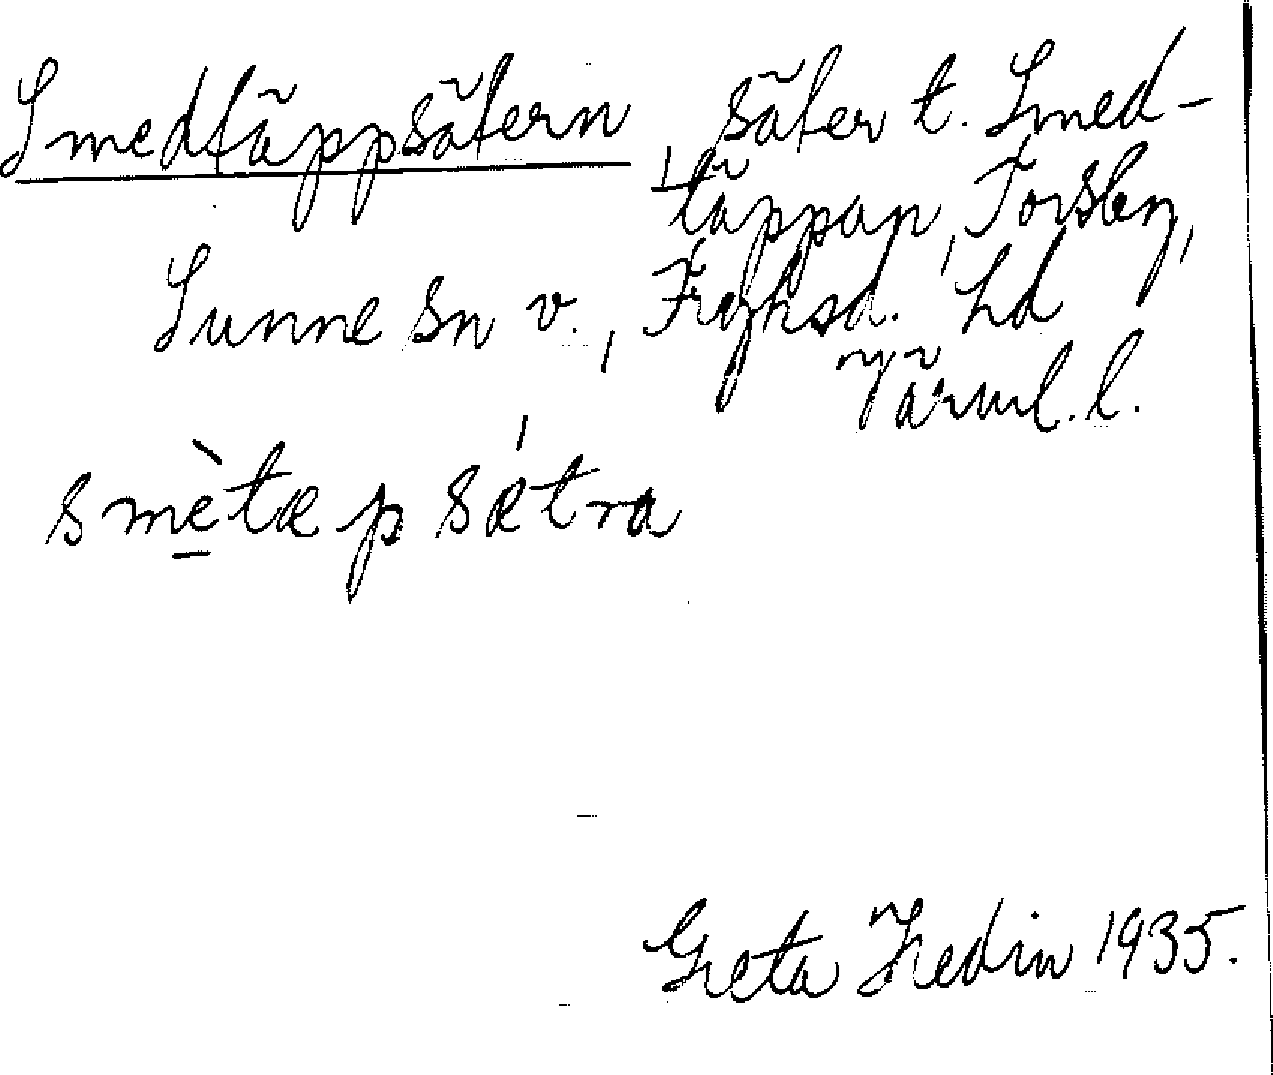 Smedtäppsätern säter t. Smed-
täppan, Torsby,
Sunne sn v., Fryksd. hd
Värml. l.
smètæpsǽtra
Greta Hedin 1935.